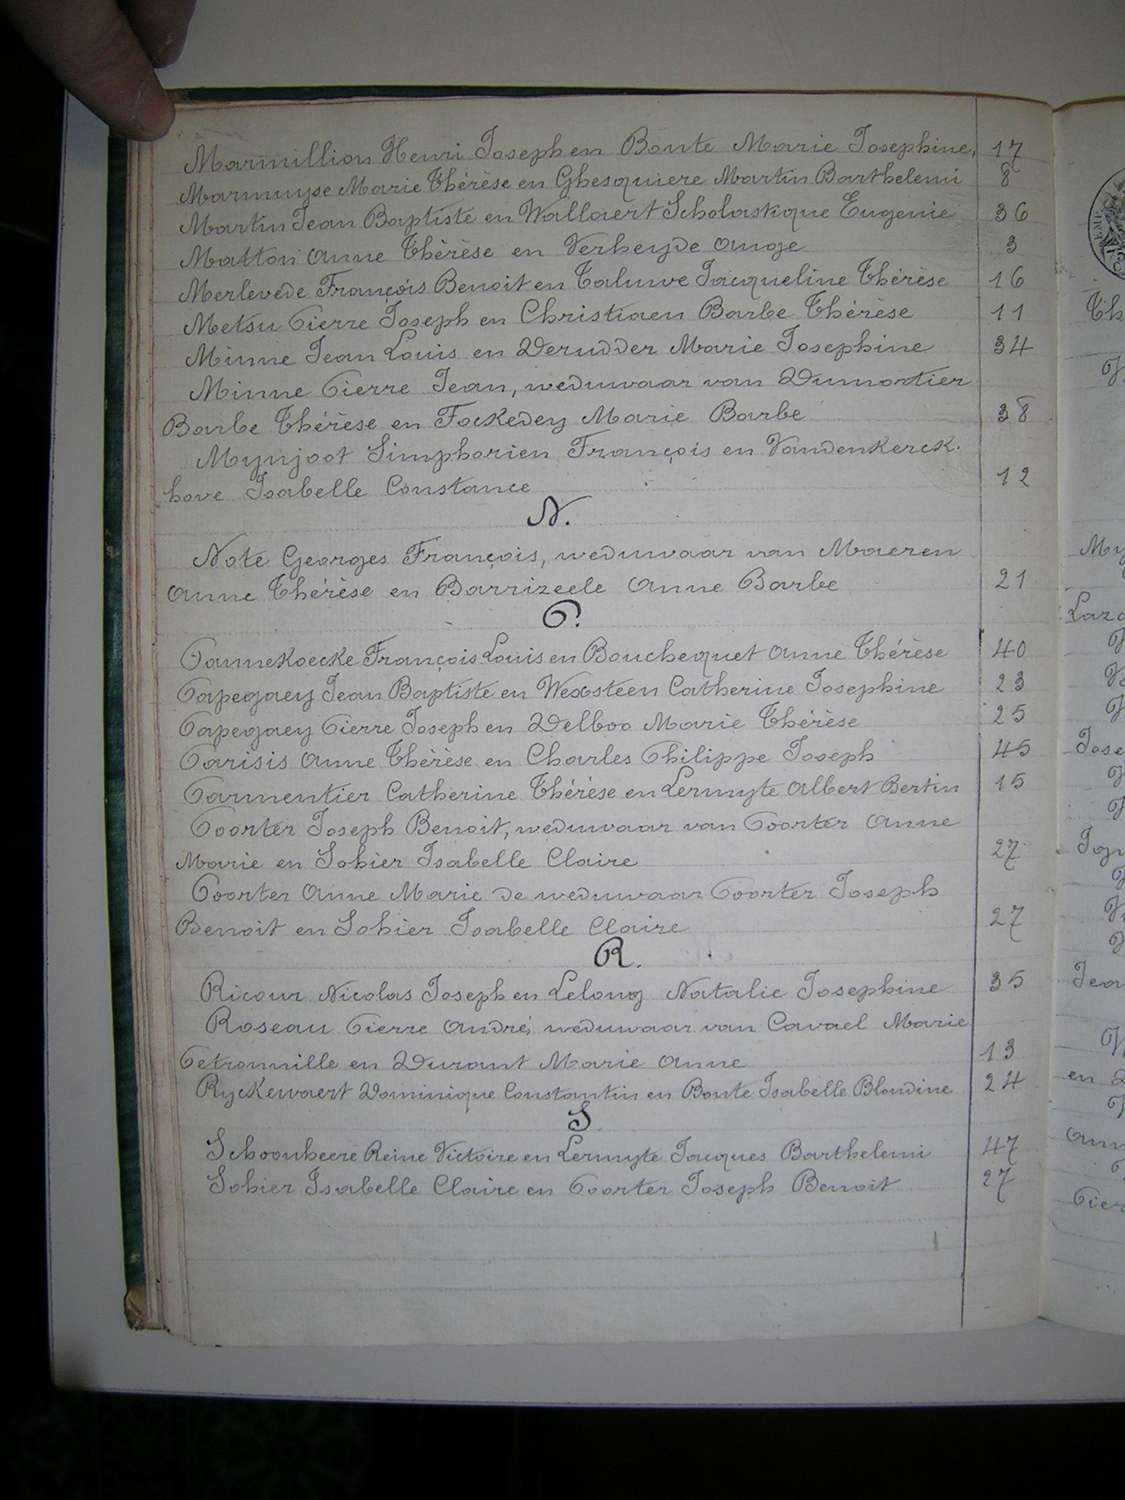 Marmillion Henri Joseph en Bonte Marie Josephine, 17
Marmuyse Marie Thérèse en Ghesquiere Martin Barthelemi 8
Martin Jean Baptiste en Wallaert Scholastique Eugenie 36
Matton Anne Thérèse en Verheyde Ange 3
Merlevede François Benoit en Taluwe Jacqueline Thérèse 16
Metsu Pierre Joseph en Christiaen Barbe Thérèse 11
Minne Jean Louis en Derudder Marie Josephine 34
Minne Pierre Jean, weduwaar van Dumortier
Barbe Thérèse en Fockedey Marie Barbe 38
Mynjoot Simphorien François en Vandenkerck-
hove Isabelle Constance 12
N.
Note Georges François, weduwaar van Maeren
Anne Thérèse en Barrizeele Anne Barbe 21
P.
Pannekoecke François Louis en Bouchequet Anne Thérèse 40
Papegaey Jean Baptiste en Wexsteen Catherine Josephine 23
Papegaey Pierre Joseph en Delboo Marie Thérèse 25
Parisis Anne Thérèse en Charles Philippe Joseph 45
Parmentier Catherine Thérèse en Lermyte Albert Bertin 15
Poorter Joseph Benoit, weduwaar van Poorter Anne
Marie en Sohier Isabelle Claire 27
Poorter Anne Marie de weduwaar Poorter Joseph
Benoit en Sohier Isabelle Claire 27
R.
Ricour Nicolas Joseph en Lelong Natalie Josephine 35
Roseau Pierre André, weduwaar van Cavael Marie
Petronnille en Durant Marie Anne 13
Ryckewaert Dominique Constantin en Bonte Isabelle Blondine 24
S
Schoonheere Reine Victoire en Lermyte Jacques Barthelemi 47
Sohier Isabelle Claire en Poorter Joseph Benoit 27